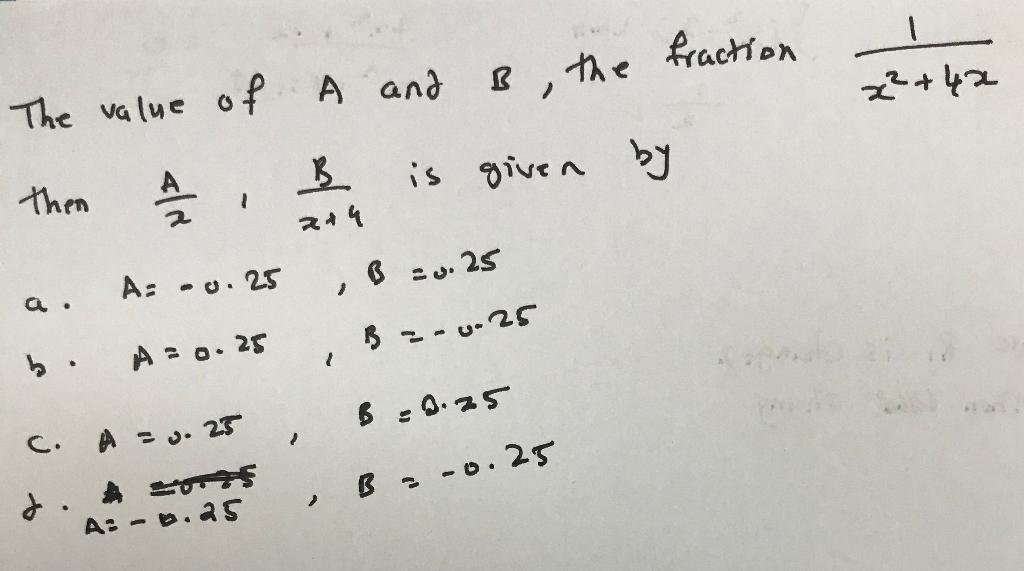 The value of A and B, the fraction 1/(x²+4x)
then A/x , B/(x+4) is given by
a. A= -0.25 , B =0.25
b. A = 0.25 , B = -0.25
c. A = 0.25 , B = 0.25
d. A= -0.25 , B = -0.25